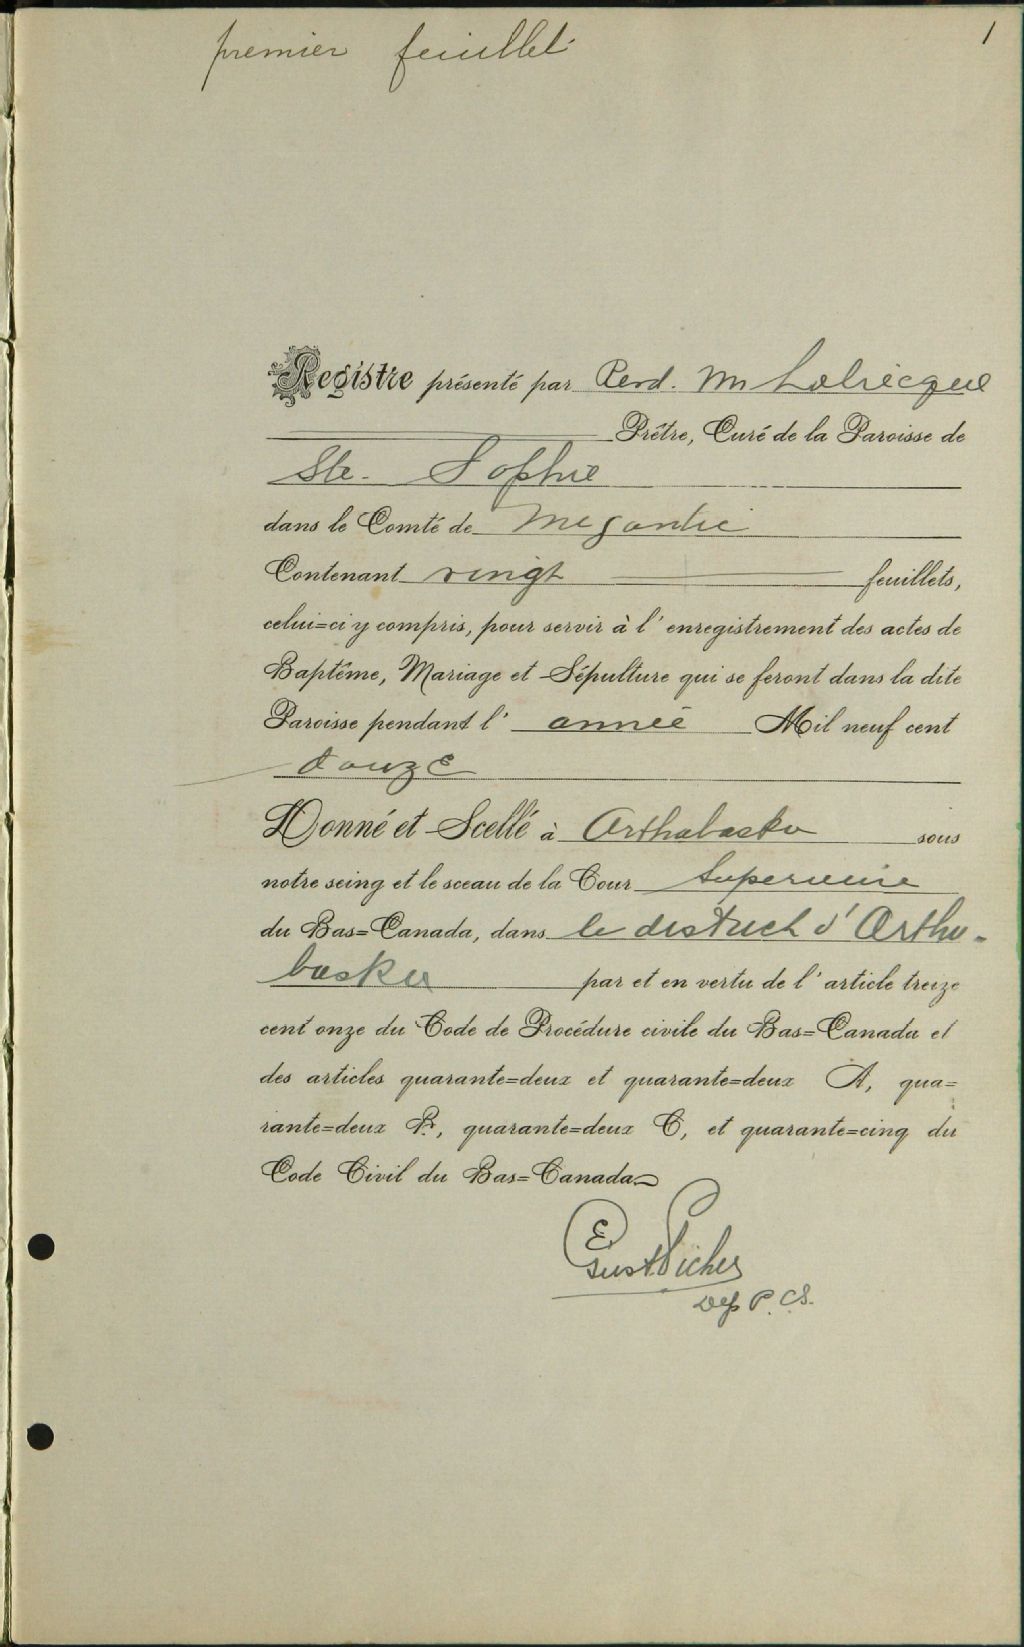 premier feuillet
1
Registre présenté par Revd. M Labrecque
Prêtre, Curé de la Paroisse de
Ste. Sophie
dans le Comté de Megantic
Contenant vingt feuillets,
celui=ci y compris, pour servir à l'enregistrement des actes de
Baptême, Mariage et Sépulture qui se feront dans la dite
Paroisse pendant l'année Mil neuf cent
douze
Donné et Scellé à Arthabaska sous
notre seing et le sceau de la Cour Superieure
du Bas=Canada, dans le district d'Artha-
baska par et en vertu de l'article treize
cent onze du Code de Procédure civile du Bas=Canada et
des articles quarante=deux et quarante=deux A, qua=
rante=deux B, quarante=deux C, et quarante=cinq du
Code Civil du Bas=Canada
Dep P. C.S.